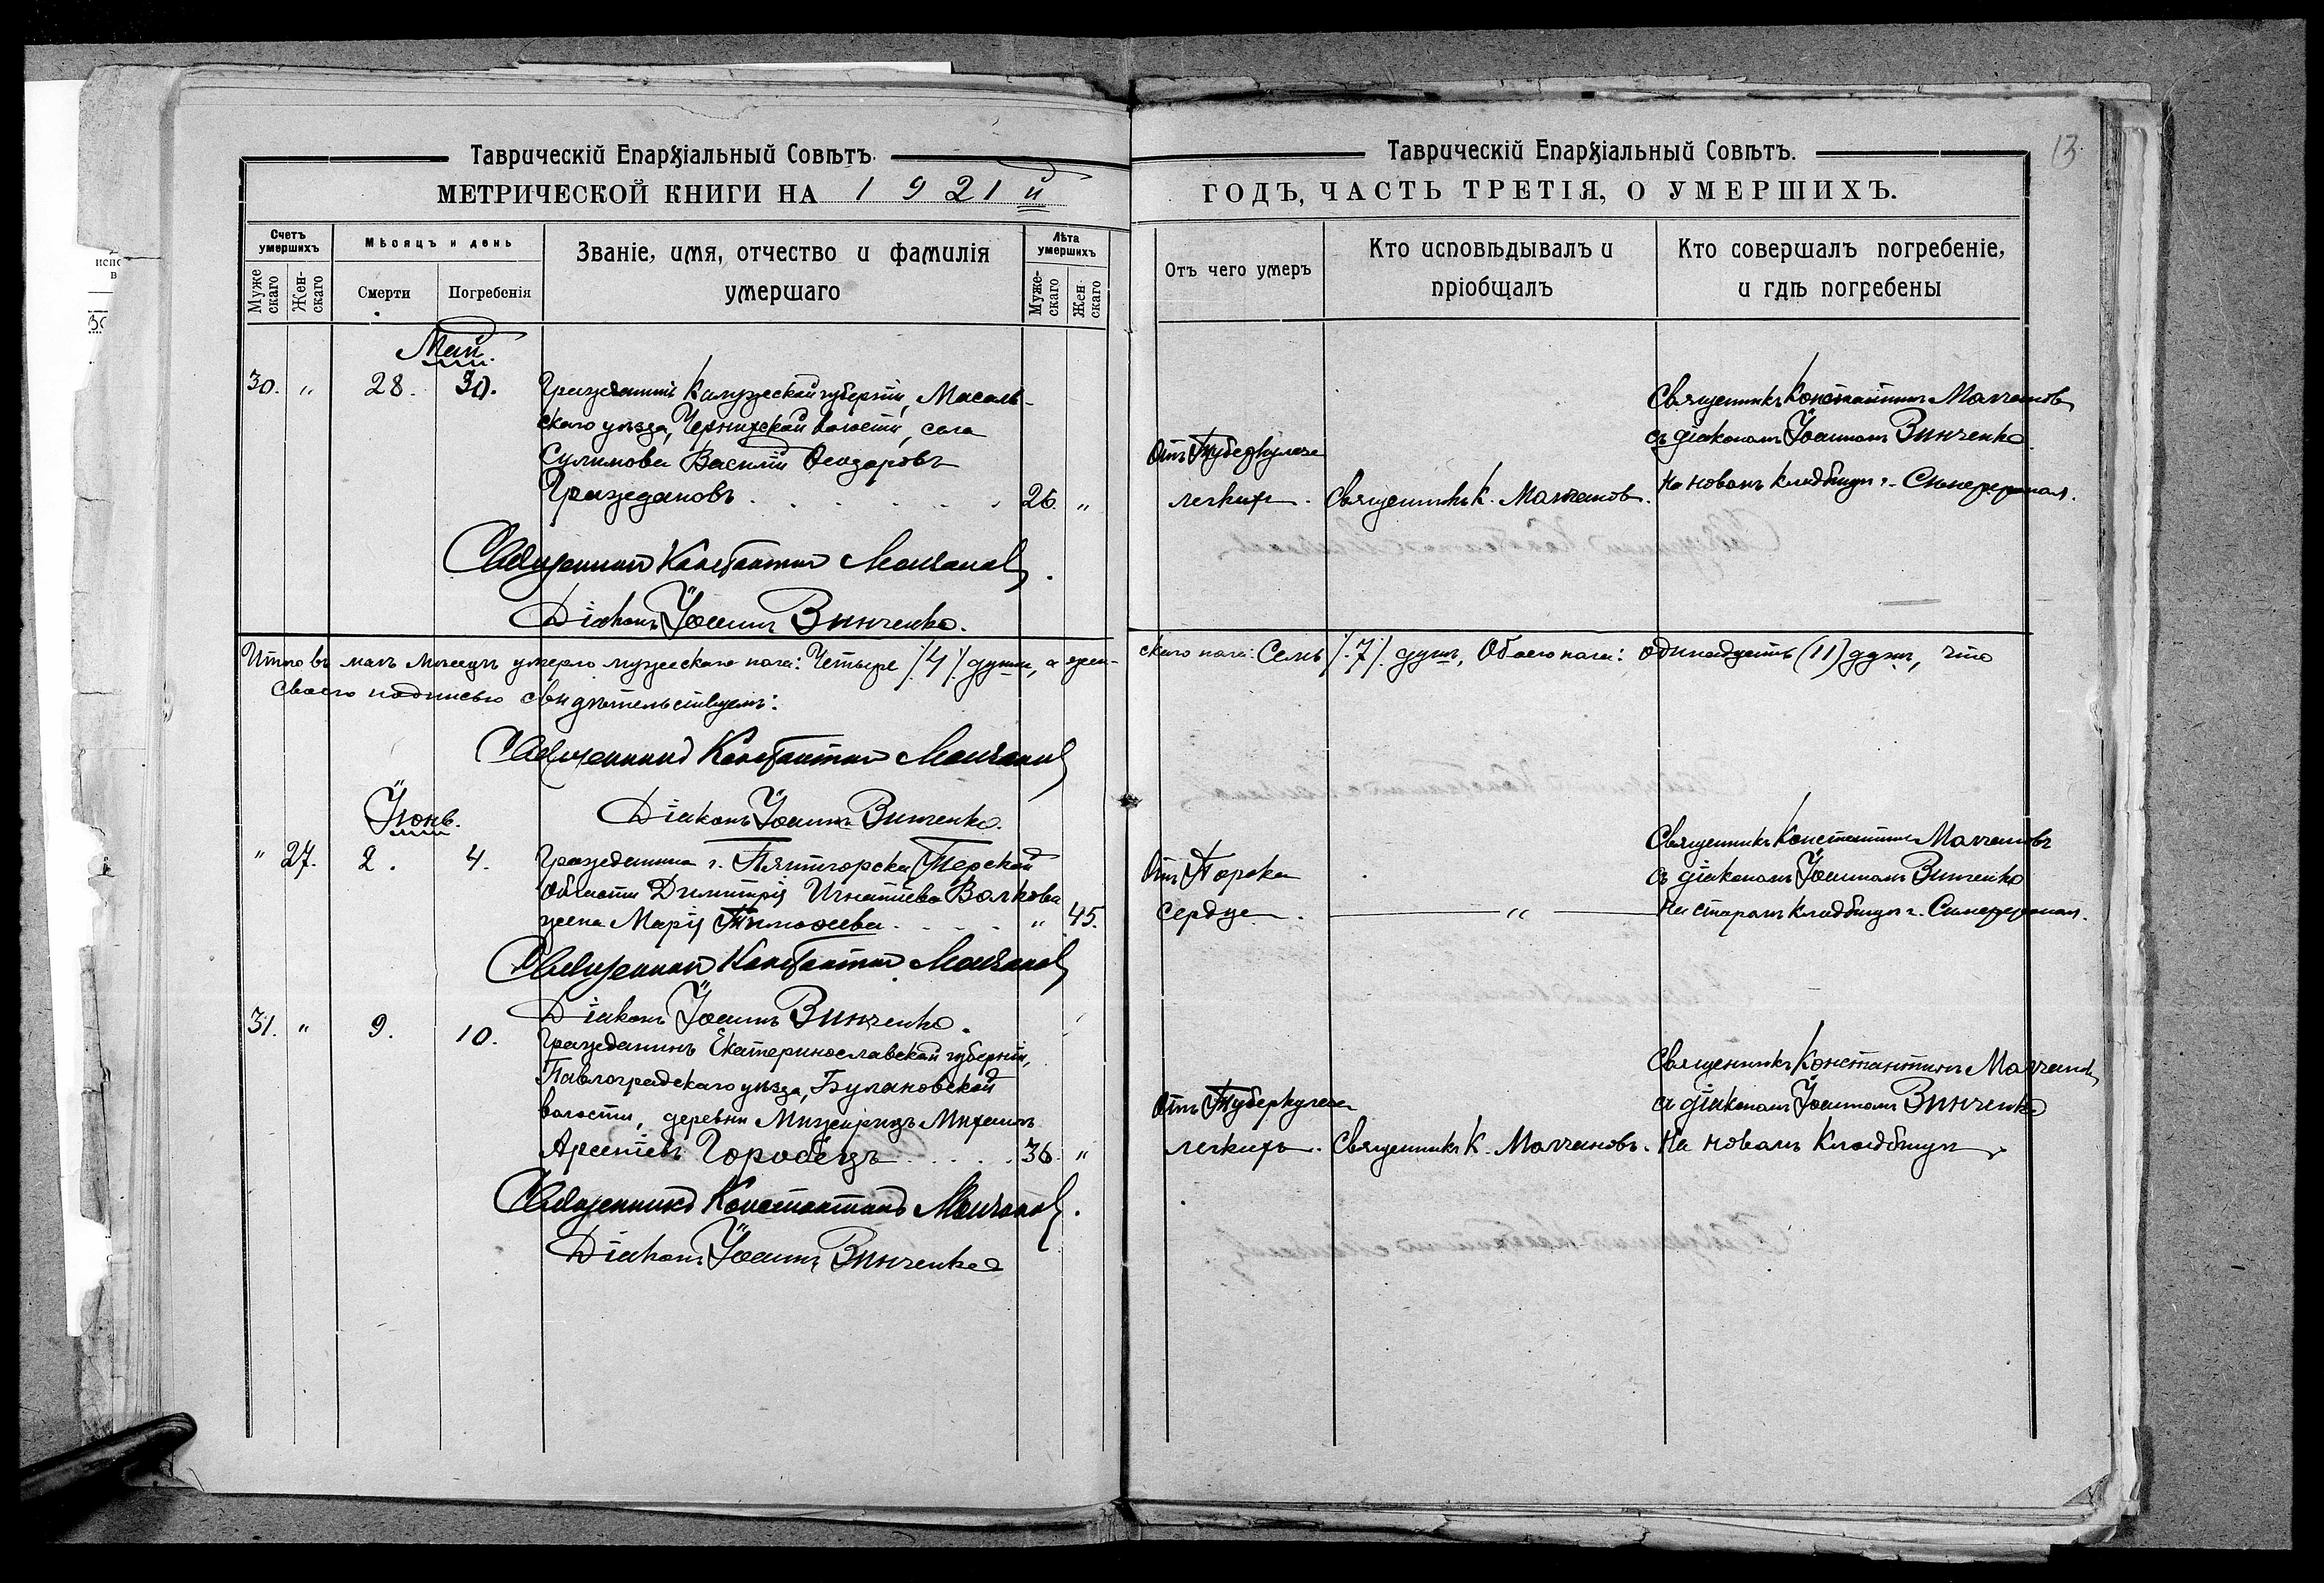 Таврическій Епархіальный Совѣтъ.
МЕТРИЧЕСКОЙ КНИГИ НА 1921й
Счетъ умершихъ
Муже скаго
Жен- скаго
Мѣсяцъ и день
Смерти
Погребенія
Званіе, имя, отчество и фамилія
умершаго
Лѣта умершихъ
Муже- скаго
Жен- скаго
Май.
30. " 28. 30. Гражданинъ Калужской губерніи, Масаль-
скаго уѣзда, волости, села
Сулимова Василій Ѳеодоровъ
Граждановъ. 26. "
Священникъ Константинъ Молчановъ.
Діаконъ Іоаннъ Винченко.
Итого въ маѣ мѣсяцѣ умерло мужескаго пола: Четыре /4/ души, а жен-
своею подписью свидѣтельствуемъ:
Священникъ Константинъ Молчановъ
Діаконъ Іоаннъ Винченко.
Іюнь.
" 27. 2. 4. Гражданина г. Пятигорска Терской
области Димитрія Игнатіева Волкова
жена Марія Тимоѳеева. " 45.
Священникъ Константинъ Молчановъ
Діаконъ Іоаннъ Винченко.
31. " 9. 10. Гражданинъ Екатеринославской губерніи,
Павлоградскаго уѣзда, Булановской
волости, деревни Межиричъ Михаилъ
Арсеніевъ Горобецъ 36. "
Священникъ Константинъ Молчановъ.
Діаконъ Іоаннъ Винченко
13
Таврическій Епархіальный Совѣтъ.
ГОДЪ, ЧАСТЬ ТРЕТІЯ, О УМЕРШИХЪ.
Отъ чего умеръ
Кто исповѣдывалъ и
пріобщалъ
Кто совершалъ погребеніе,
и гдѣ погребены
Отъ Туберкулеза
легкихъ.
Священникъ К. Молчановъ.
Священникъ Константинъ Молчановъ
съ діакономъ Іоанномъ Винченко
На новомъ кладбищѣ г. Симферополя.
скаго пола: Семь /7/ душъ, Обоего пола: одинадцать (11) душъ, что
Отъ Порока
сердца.
"
Священникъ Константинъ Молчановъ
съ діакономъ Іоанномъ Винченко
На старомъ кладбищѣ г. Симферополя.
Отъ Туберкулеза
легкихъ.
Священникъ К. Молчановъ.
Священникъ Константинъ Молчановъ
съ діакономъ Іоанномъ Винченко
На новомъ кладбищѣ